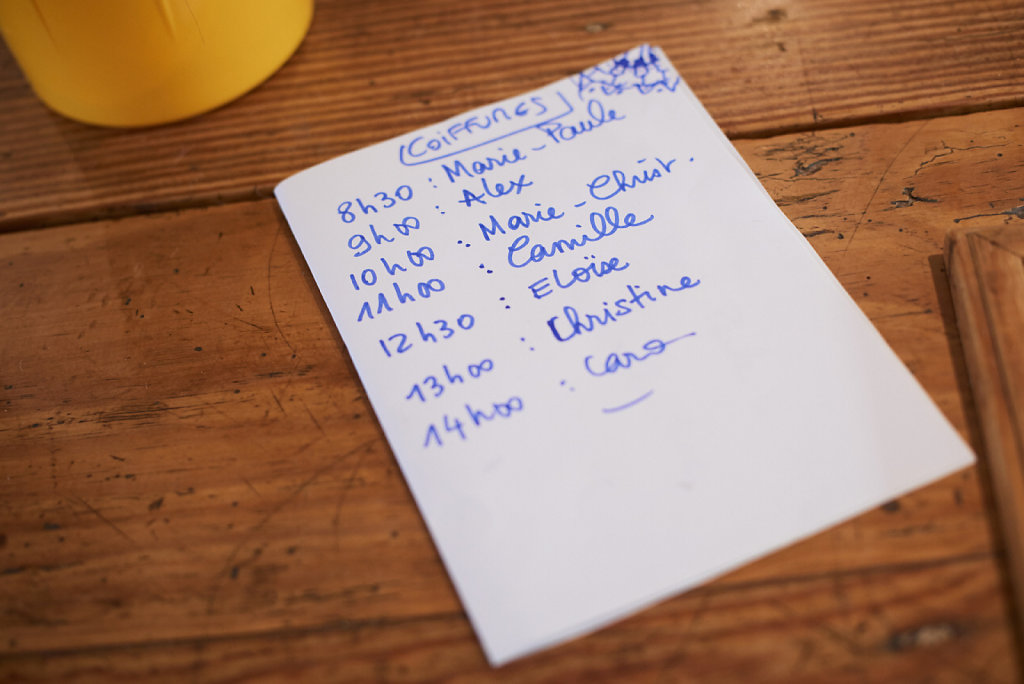 COIFFURES
8h30 : Marie-Paule
9h00 : Alex
10h00 : Marie-Christ.
11h00 : Camille
12h30 : ELoïse
13h00 : Christine
14h00 : Caro